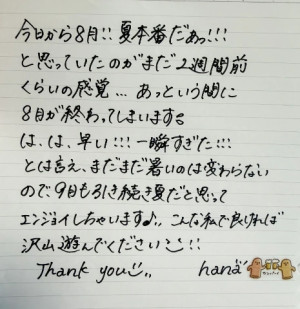 今日から8月!! 夏本番だぁっ!!!
と思っていたのがまだ2週間前
くらいの感覚… あっという間に
8月が終わってしまいます
は、は、早い!!! 一瞬すぎた!!!
とは言え、まだまだ暑いのは変わらない
ので、9月も引き続き夏だと思って
エンジョイしちゃいます♪,, こんな私で良ければ
沢山遊んでください!!
Thank you,,
hana